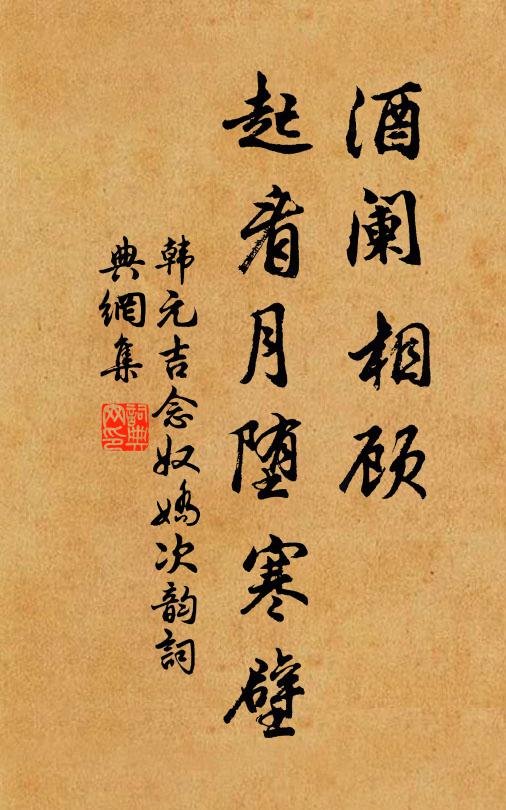 酒阑相顾
起看月堕寒壁
韩元吉念奴娇次韵詞
典網集
詞典網印